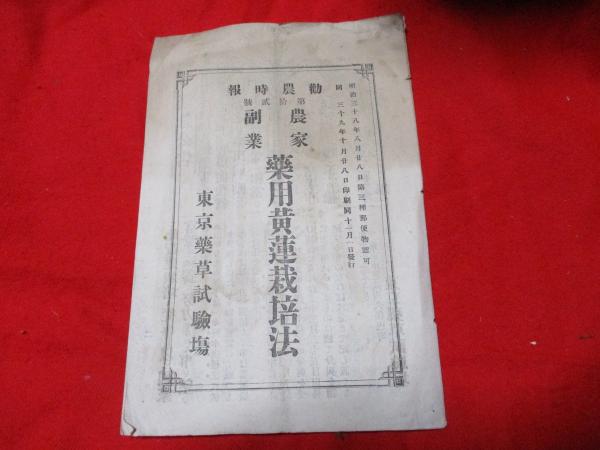 明治三十八年八月廿八日第三種郵便物認可
同 三十九年十月廿八日印刷同十一月一日發行
勸農時報
第拾貳號
農家
副業
藥用黄蓮栽培法
東京藥草試驗場